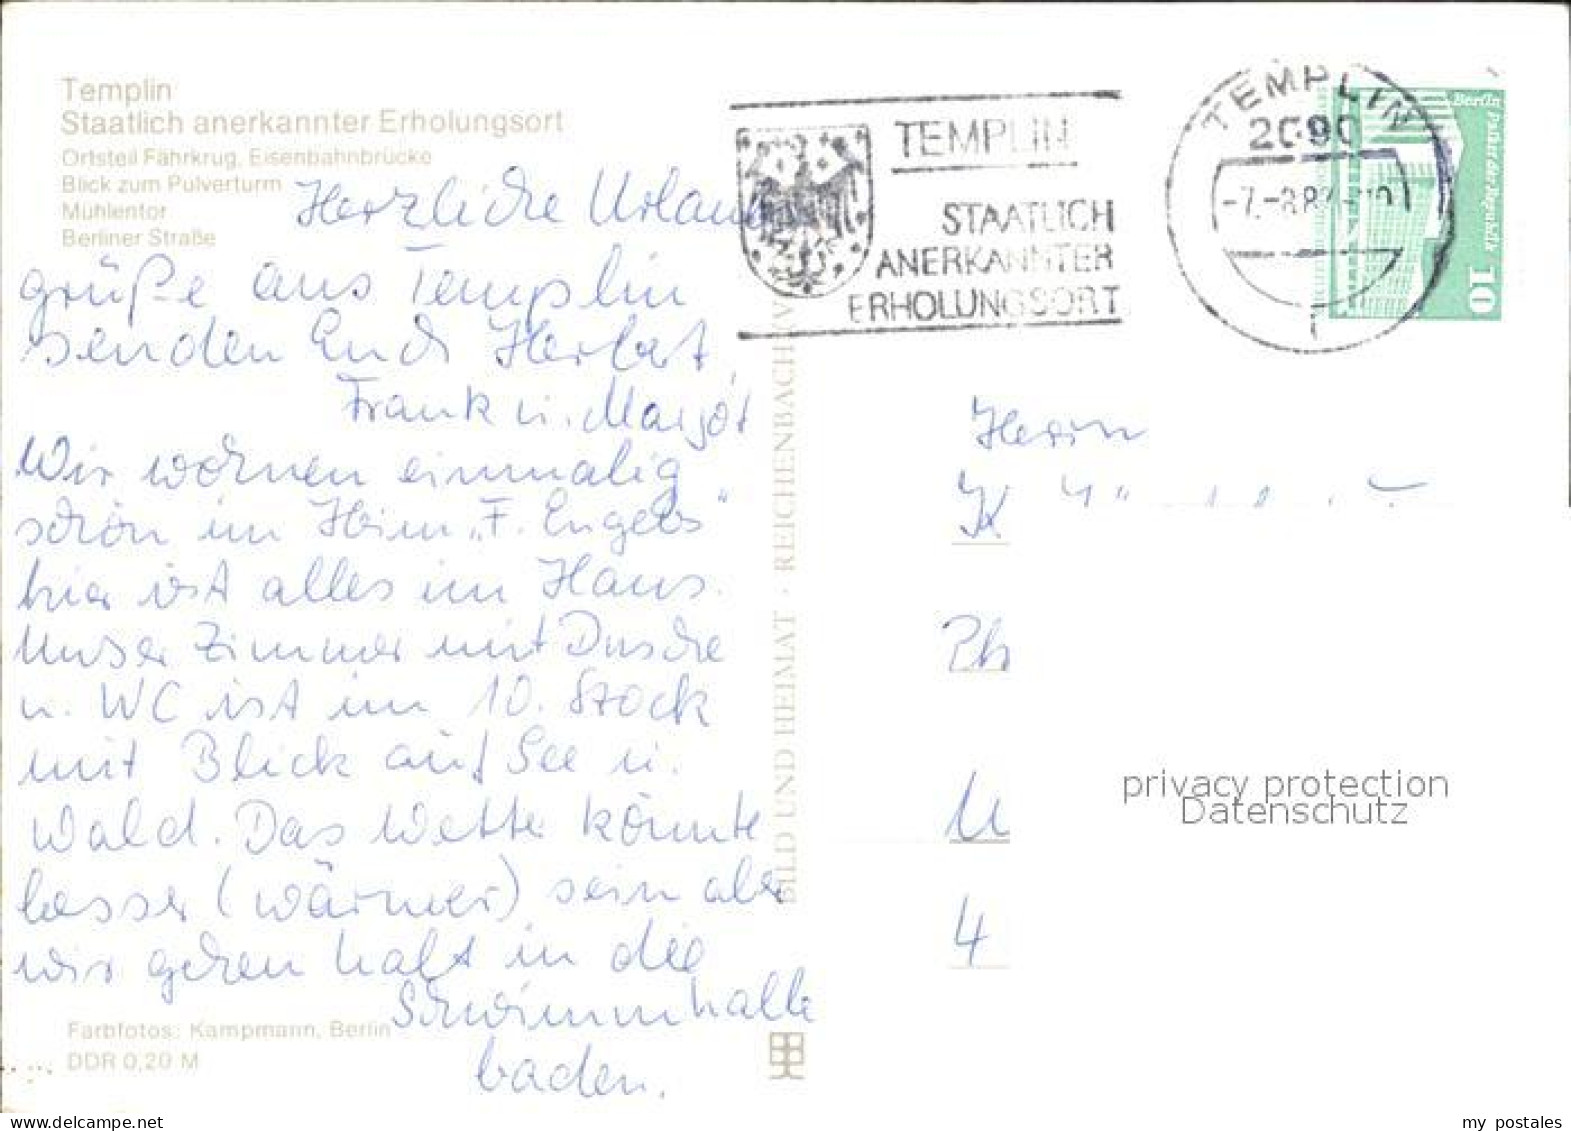 Templin
Staatlich anerkannter Erholungsort
Ortsteil Fährkrug, Eisenbahnbrücke
Blick zum Pulverturm
Mühlentor
Berliner Straße
Herzliche Urlaubs
grüße aus Templin
senden Euch Herbert,
Frank u. Margot
Wir wohnen einmalig
schön im Heim „F. Engels"
hier ist alles im Haus.
Unser Zimmer mit Dusche
u. WC ist im 10. Stock
mit Blick auf See u.
Wald. Das Wetter könnte
besser (wärmer) sein aber
wir gehen halt in die
Schwimmhalle
baden.
Farbfotos: Kampmann, Berlin
DDR 0,20 M
BILD UND HEIMAT · REICHENBACH (V
TEMPLIN
STAATLICH
ANERKANNTER
ERHOLUNGSORT
TEMPLIN
2090
Berlin Palast der Republik
10
Herrn
K
Ph
U
4
privacy protection
Datenschutz
my-postcards.com
my postales